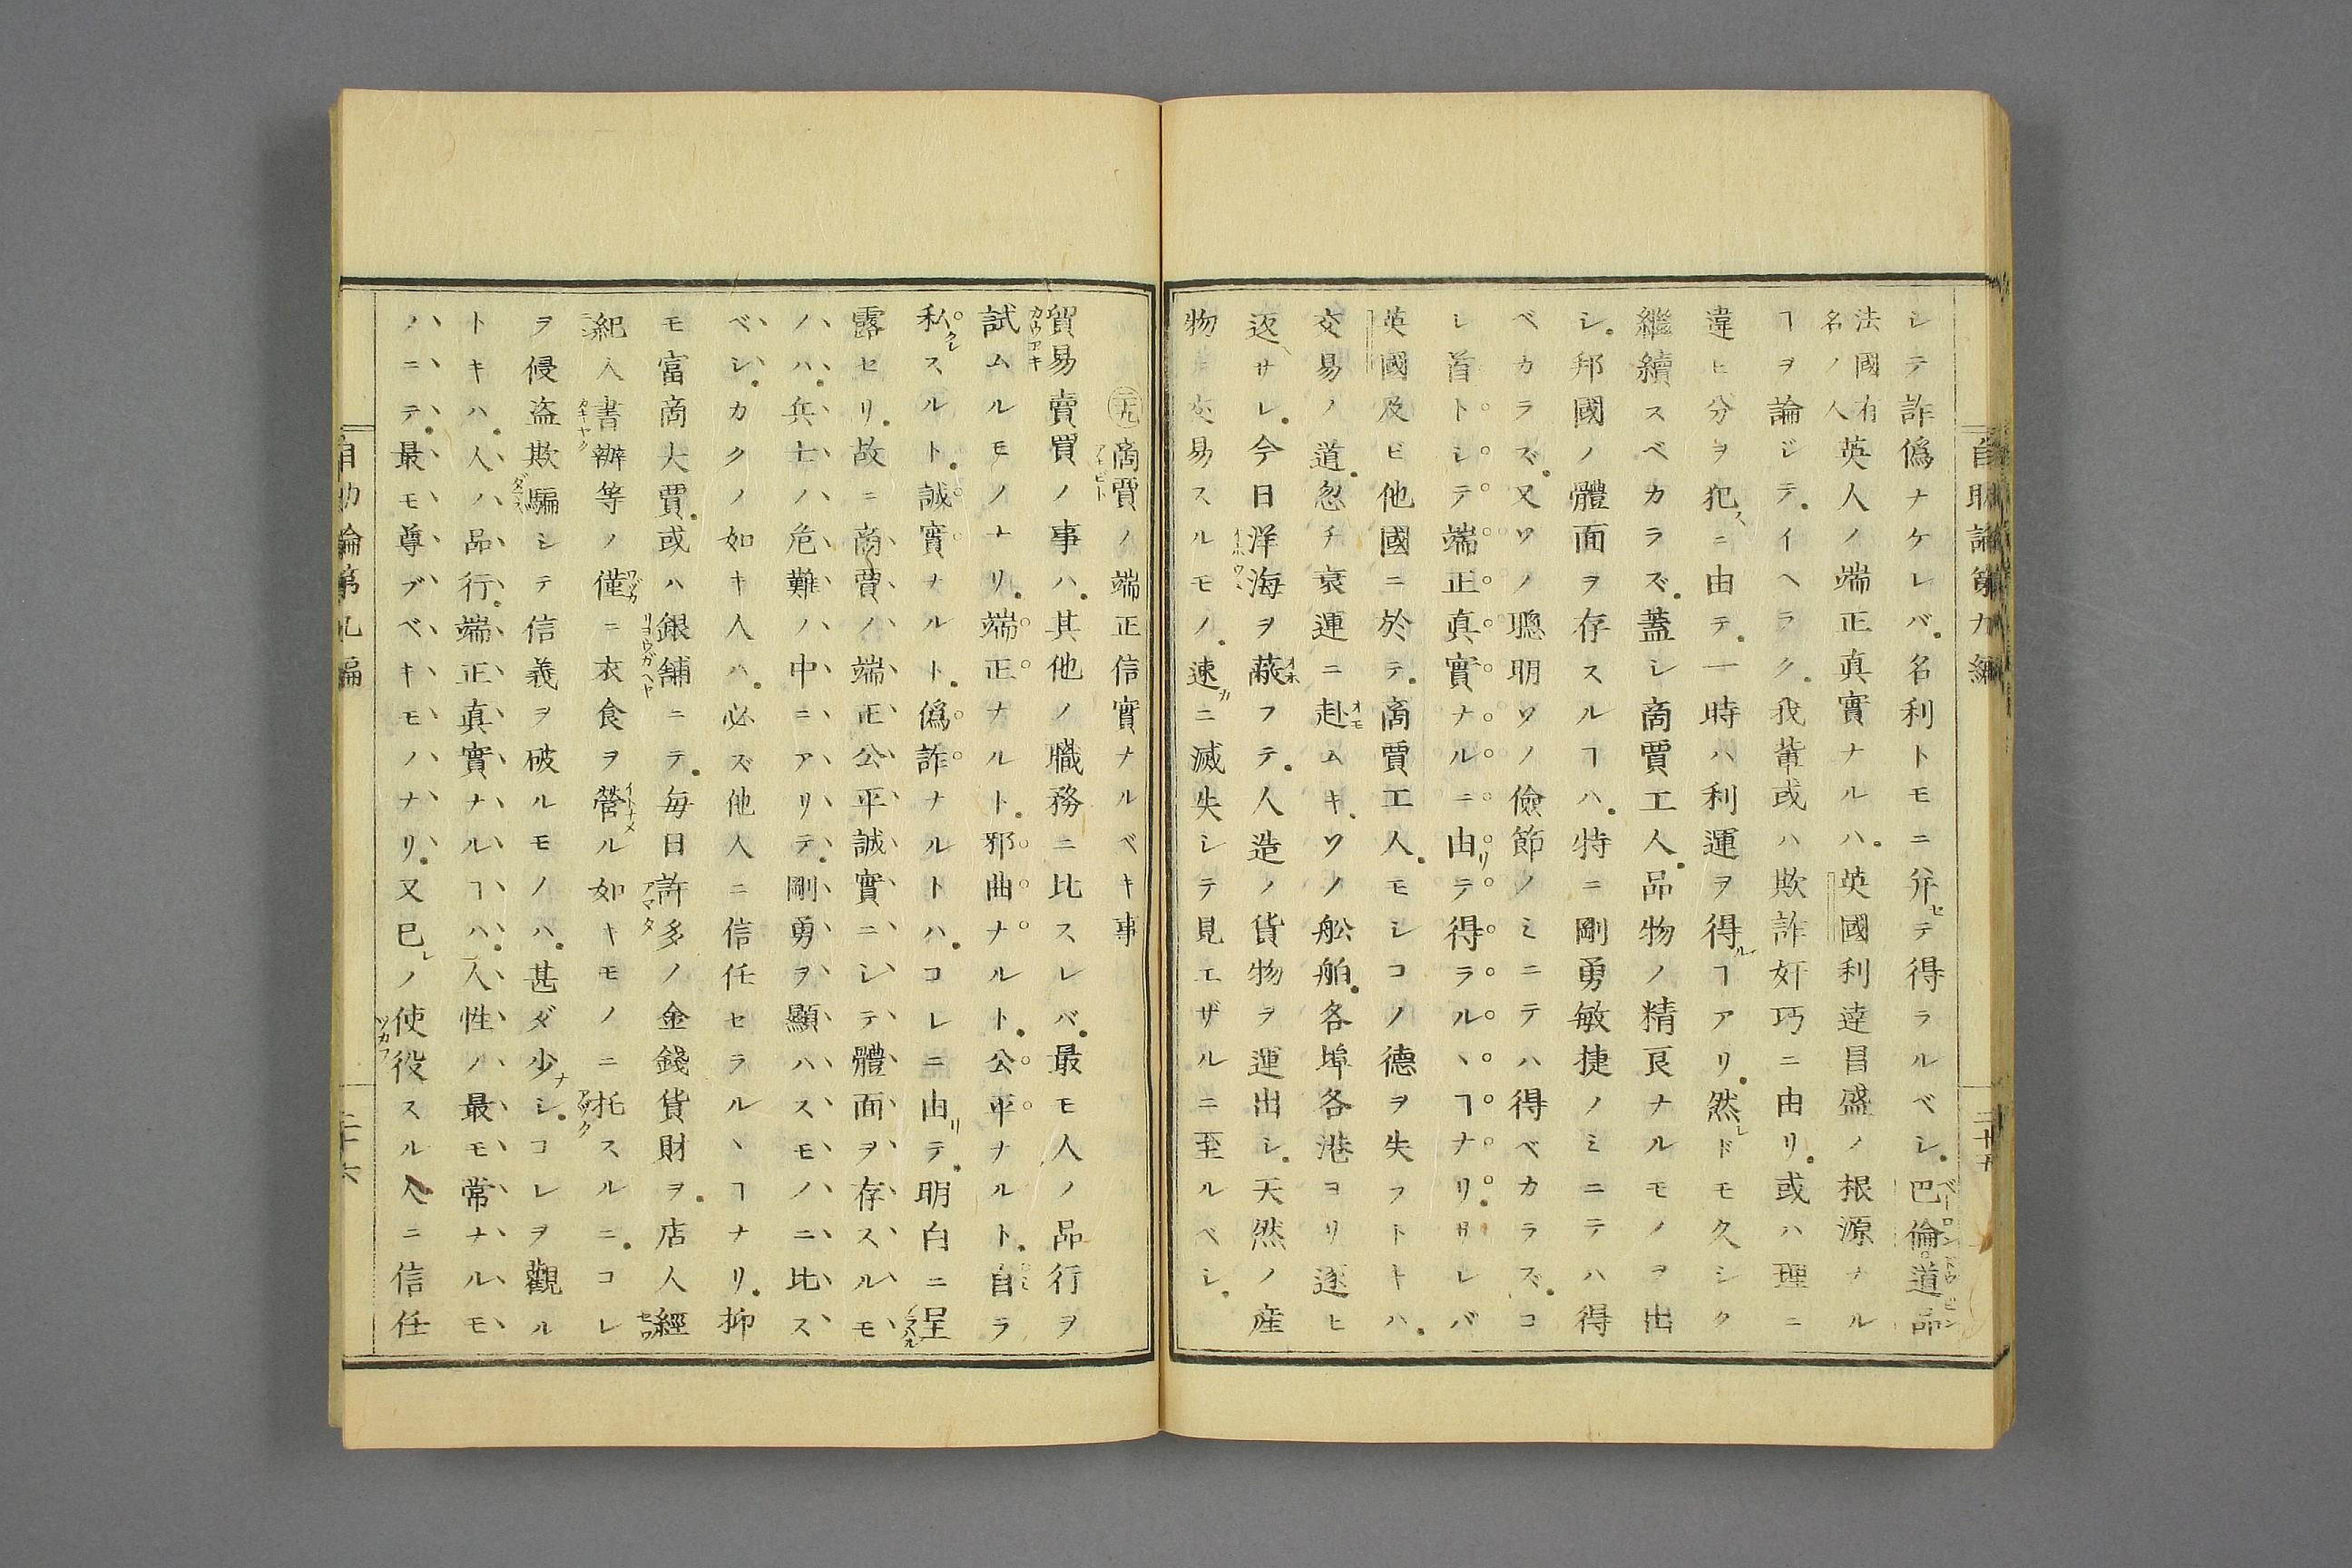 シテ詐僞ナケレバ名利トモニ幷セテ得ラルベシ巴倫道品
法國有名ノ人英人ノ端正真實ナルハ英國利達昌盛ノ根源ナル
ヿヲ論ジテイヘラク我輩或ハ欺詐奸巧ニ由リ或ハ理ニ
違ヒ分ヲ犯スニ由テ一時ハ利運ヲ得ルヿアリ然レドモ久シク
繼續スベカラズ蓋シ商賈工人品物ノ精良ナルモノヲ出
シ邦國ノ體面ヲ存スルヿハ特ニ剛勇敏捷ノミニテハ得
ベカラズ又ソノ聰明ソノ儉節ノミニテハ得ベカラズコ
レ首トシテ端正真實ナルニ由リテ得ラルヽヿナリサレバ
英國及ビ他國ニ於テ商賈工人モシコノ德ヲ失フトキハ
交易ノ道忽チ衰運ニ赴ムキソノ舩舶各埠各港ヨリ逐ヒ
返サレ今日洋海ヲ蔽フテ人造ノ貨物ヲ運出シ天然ノ産
物ニ交易スルモノ速カニ滅失シテ見エザルニ至ルベシ
自助論第九編
二十五
㊁九 商賈ノ端正信實ナルベキ事
貿易賣買ノ事ハ其他ノ職務ニ比スレバ最モ人ノ品行ヲ
試ムルモノナリ端正ナルト邪曲ナルト公平ナルト自ラ
私クレスルト誠實ナルト僞詐ナルトハコレニ由リテ明白ニ呈
露セリ故ニ商賈ノ端正公平誠實ニシテ體面ヲ存スルモ
ノハ兵士ノ危難ノ中ニアリテ剛勇ヲ顯ハスモノニ比ス
ベシカクノ如キ人ハ必ズ他人ニ信任セラルヽヿナリ抑
モ富商大賈或ハ銀舗ニテ毎日許多ノ金錢貨財ヲ店人經
紀人書辦等ノ僅ニ衣食ヲ營ル如キモノニ托スルニコレ
ヲ侵盗欺騙シテ信義ヲ破ルモノハ甚ダ少ナシコレヲ觀ル
トキハ人ノ品行端正真實ナルヿハ人性ノ最モ常ナルモ
ノニテ最モ尊ブベキモノナリ又已レノ使役スル人ニ信任
自助論第九編
二十六